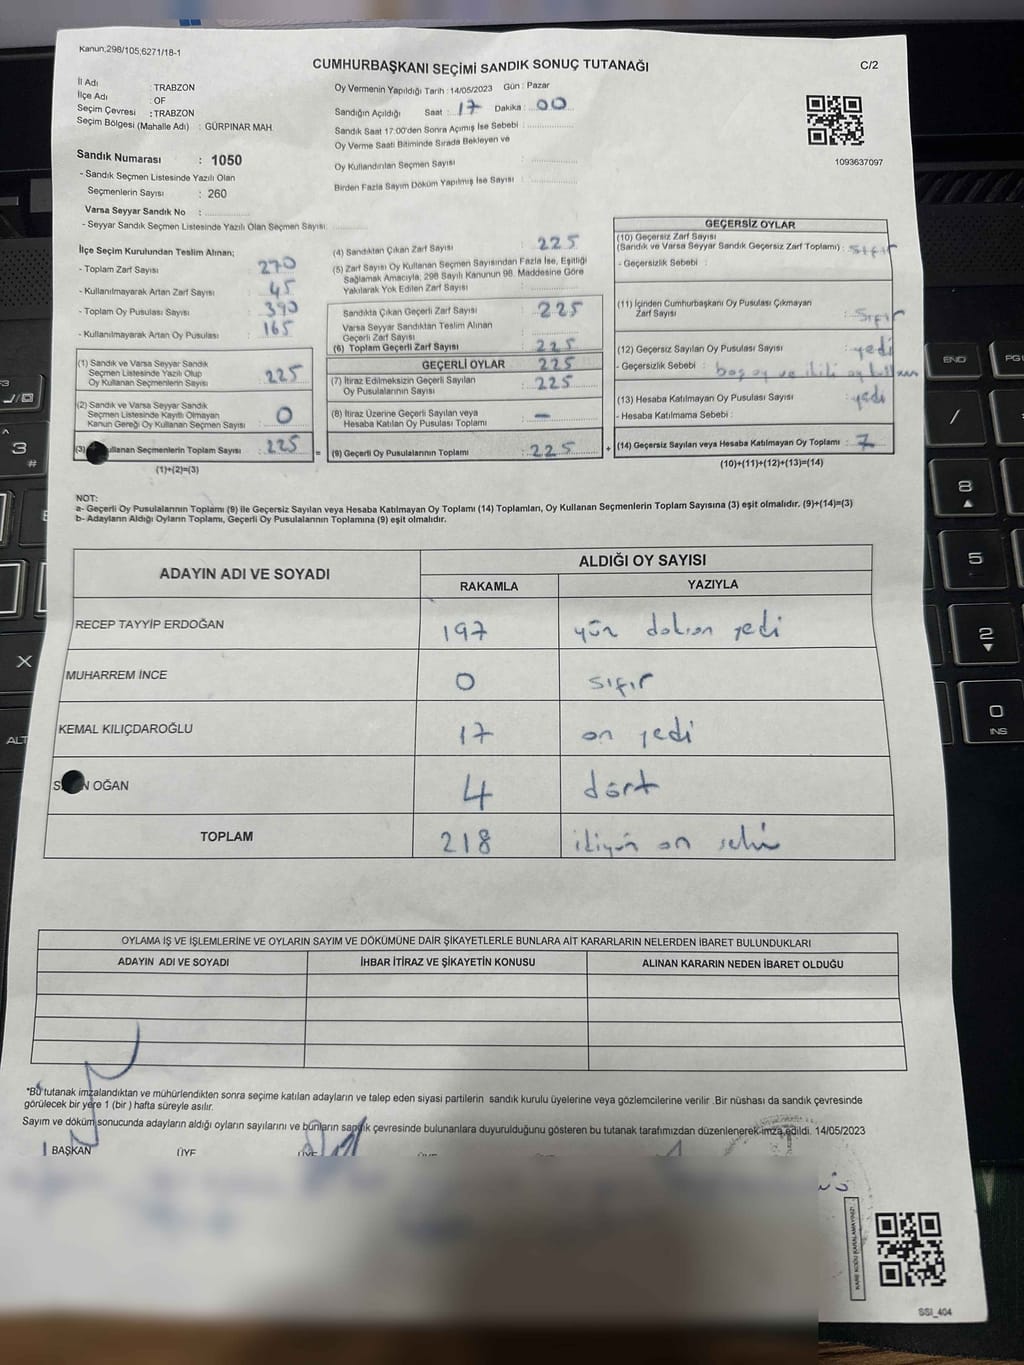 Kanun,298/105,6271/18-1
CUMHURBAŞKANI SEÇİMİ SANDIK SONUÇ TUTANAĞI
C/2
İl Adı : TRABZON
İlçe Adı : OF
Seçim Çevresi : TRABZON
Seçim Bölgesi (Mahalle Adı) : GÜRPINAR MAH.
Sandık Numarası : 1050
- Sandık Seçmen Listesinde Yazılı Olan
Seçmenlerin Sayısı : 260
Varsa Seyyar Sandık No :
- Seyyar Sandık Seçmen Listesinde Yazılı Olan Seçmen Sayısı:
Oy Vermenin Yapıldığı Tarih : 14/05/2023 Gün : Pazar
Sandığın Açıldığı Saat : 17 Dakika : 00
Sandık Saat 17:00'den Sonra Açımış İse Sebebi :
Oy Verme Saati Bitiminde Sırada Bekleyen ve
Oy Kullandırılan Seçmen Sayısı :
Birden Fazla Sayım Döküm Yapılmış İse Sayısı :
1093637097
İlçe Seçim Kurulundan Teslim Alınan;
- Toplam Zarf Sayısı : 270
- Kullanılmayarak Artan Zarf Sayısı : 45
- Toplam Oy Pusulası Sayısı : 390
- Kullanılmayarak Artan Oy Pusulası : 165
(1) Sandık ve Varsa Seyyar Sandık
Seçmen Listesinde Yazılı Olup
Oy Kullanan Seçmenlerin Sayısı : 225
(2) Sandık ve Varsa Seyyar Sandık
Seçmen Listesinde Kayıtlı Olmayan
Kanun Gereği Oy Kullanan Seçmen Sayısı : 0
(3) ullanan Seçmenlerin Toplam Sayısı : 225
(1)+(2)=(3)
(4) Sandıktan Çıkan Zarf Sayısı : 225
(5) Zarf Sayısı Oy Kullanan Seçmen Sayısından Fazla İse, Eşitliği
Sağlamak Amacıyla, 298 Sayılı Kanunun 98. Maddesine Göre
Yakılarak Yok Edilen Zarf Sayısı :
Sandıkta Çıkan Geçerli Zarf Sayısı : 225
Varsa Seyyar Sandıktan Teslim Alınan
Geçerli Zarf Sayısı :
(6) Toplam Geçerli Zarf Sayısı : 225
GEÇERLİ OYLAR 225
(7) İtiraz Edilmeksizin Geçerli Sayılan
Oy Pusulalarının Sayısı : 225
(8) İtiraz Üzerine Geçerli Sayılan veya
Hesaba Katılan Oy Pusulası Toplamı : —
= (9) Geçerli Oy Pusulalarının Toplamı : 225 +
GEÇERSİZ OYLAR
(10) Geçersiz Zarf Sayısı
(Sandık ve Varsa Seyyar Sandık Geçersiz Zarf Toplamı) : sıfır
- Geçersizlik Sebebi :
(11) İçinden Cumhurbaşkanı Oy Pusulası Çıkmayan
Zarf Sayısı : Sıfır
(12) Geçersiz Sayılan Oy Pusulası Sayısı : yedi
- Geçersizlik Sebebi : boş oy ve ikili oy
(13) Hesaba Katılmayan Oy Pusulası Sayısı : yedi
- Hesaba Katılmama Sebebi :
(14) Geçersiz Sayılan veya Hesaba Katılmayan Oy Toplamı : 7
(10)+(11)+(12)+(13)=(14)
NOT:
a- Geçerli Oy Pusulalarının Toplamı (9) ile Geçersiz Sayılan veya Hesaba Katılmayan Oy Toplamı (14) Toplamları, Oy Kullanan Seçmenlerin Toplam Sayısına (3) eşit olmalıdır. (9)+(14)=(3)
b- Adayların Aldığı Oyların Toplamı, Geçerli Oy Pusulalarının Toplamına (9) eşit olmalıdır.
ADAYIN ADI VE SOYADI
ALDIĞI OY SAYISI
RAKAMLA YAZIYLA
RECEP TAYYİP ERDOĞAN 197 yüz doksan yedi
MUHARREM İNCE 0 sıfır
KEMAL KILIÇDAROĞLU 17 on yedi
S N OĞAN 4 dört
TOPLAM 218 ikiyüz on sekiz
OYLAMA İŞ VE İŞLEMLERİNE VE OYLARIN SAYIM VE DÖKÜMÜNE DAİR ŞİKAYETLERLE BUNLARA AİT KARARLARIN NELERDEN İBARET BULUNDUKLARI
ADAYIN ADI VE SOYADI İHBAR İTİRAZ VE ŞİKAYETİN KONUSU ALINAN KARARIN NEDEN İBARET OLDUĞU
*Bu tutanak imzalandıktan ve mühürlendikten sonra seçime katılan adayların ve talep eden siyasi partilerin sandık kurulu üyelerine veya gözlemcilerine verilir .Bir nüshası da sandık çevresinde
görülecek bir yere 1 (bir ) hafta süreyle asılır.
Sayım ve döküm sonucunda adayların aldığı oyların sayılarını ve bunların sandık çevresinde bulunanlara duyurulduğunu gösteren bu tutanak tarafımızdan düzenlenerek imza edildi. 14/05/2023
BAŞKAN ÜYE ÜYE
KARE KODU KARALAMAYINIZ!
SSI_404
END
3
#
X
ALT
/
8
5
2
0
INS